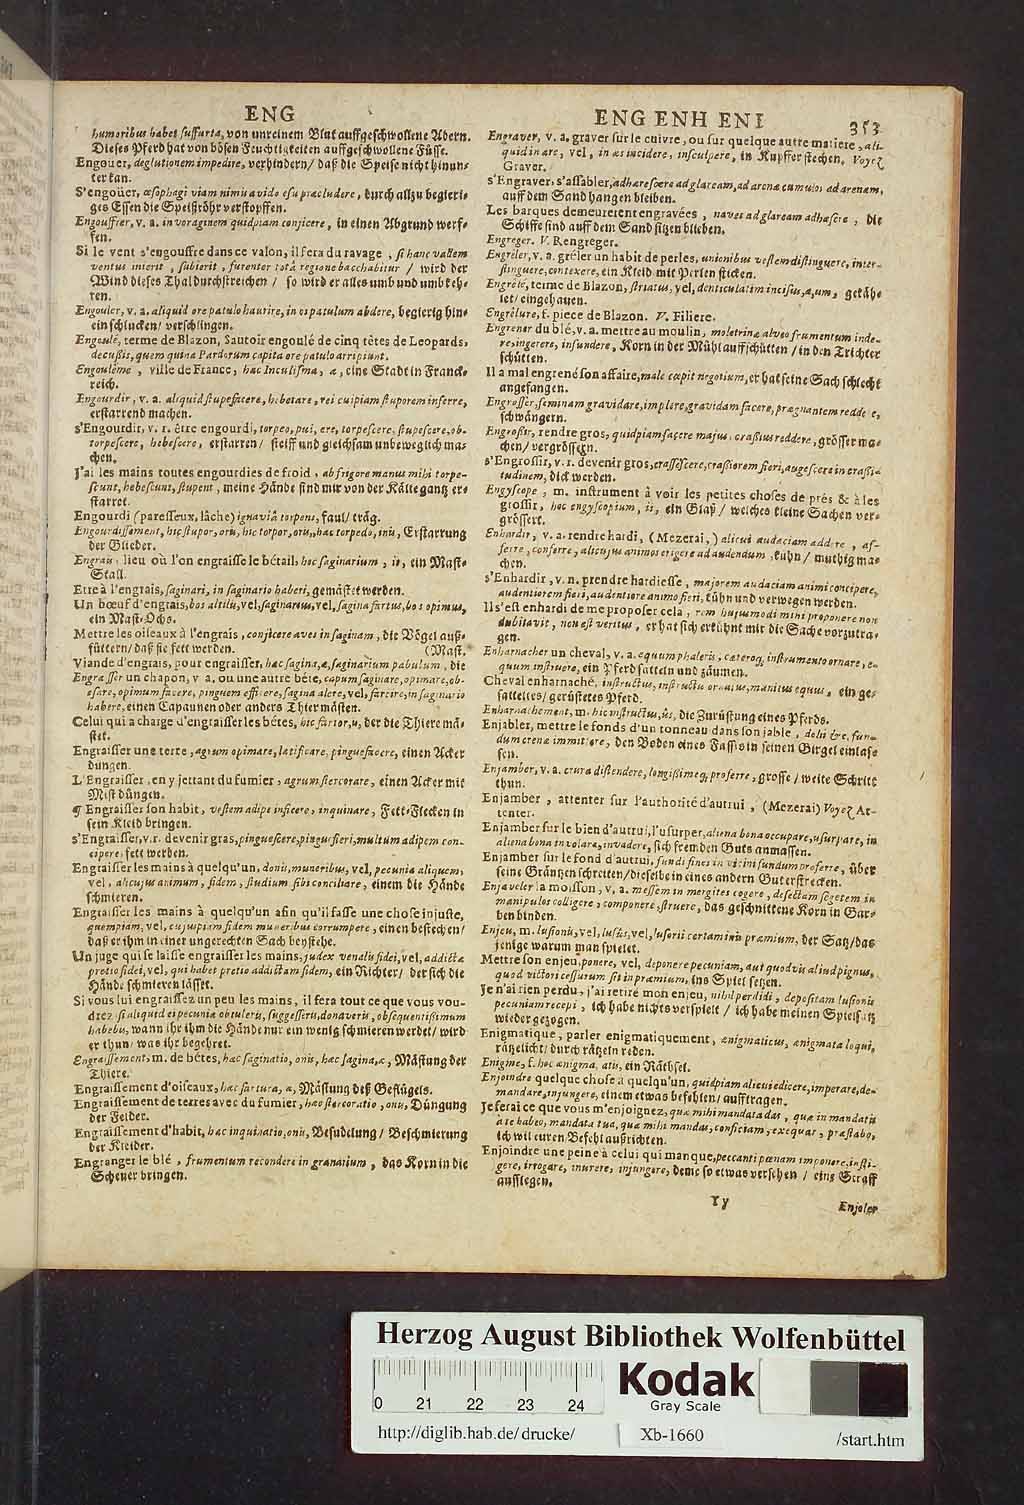 ENG
humoribus habet suffusa, von unreinem Blut auffgeschwollene Adern.
Dieses Pferd hat von bösen Feuchtigkeiten auffgeschwollene Füsse.
Engouer, deglutionem impedire, verhindern / daß die Speise nicht hinun-
ter kan.
S'engoüer, œsophagi viam nimis avido esu præcludere, durch allzu begieri-
ges Essen die Speißröhr verstopffen.
Engouffrer, v. a. in voraginem quidpiam conjicere, in einen Abgrund werf-
fen.
Si le vent s'engouffre dans ce valon, il fera du ravage, si hanc vallem
ventus inierit, subierit, furenter totâ regione bacchabitur / wird der
Wind dieses Thal durchstreichen / so wird er alles umb und umb keh-
ren.
Engouler, v. a. aliquid ore patulo haurire, in os patulum abdere, begierig hin-
ein schlucken / verschlingen.
Engoulé, terme de Blazon, Sautoir engoulé de cinq têtes de Leopards,
decussis, quem quina Pardorum capita ore patulo arripiunt.
Engoulême, ville de France, hæc Inculisma, æ, eine Stadt in Franck-
reich.
Engourdir, v. a. aliquid stupefacere, hebetare, rei cuipiam stuporem inferre,
erstarrend machen.
s'Engourdir, v. r. être engourdi, torpeo, pui, ere, torpescere, stupescere, ob-
torpescere, hebescere, erstarren / steiff und gleichsam unbeweglich ma-
chen.
J'ai les mains toutes engourdies de froid, ab frigore manus mihi torpe-
scunt, hebescunt, stupent, meine Hände sind mir von der Kälte gantz er-
starret.
Engourdi (paresseux, lâche) ignaviâ torpens, faul / träg.
Engourdissement, hic stupor, oris, hic torpor, oris, hæc torpedo, inis, Erstarrung
der Glieder.
Engrais, lieu où l'on engraisse le bétail, hoc saginarium, ii, ein Mast-
Stall.
Etre à l'engrais, saginari, in saginario haberi, gemästet werden.
Un bœuf d'engrais, bos altilis, vel, saginatus, vel, sagina fartus, bos opimus,
ein Mast-Ochs.
Mettre les oiseaux à l'engrais, conjicere aves in saginam, die Vögel auß-
füttern / daß sie fett werden. (Mast.
Viande d'engrais, pour engraisser, hæc sagina, æ, saginarium pabulum, die
Engraisser un chapon, v. a. ou une autre béte, capum saginare, opimare, ob-
esare, opimum facere, pinguem efficere, sagina alere, vel, farcire, in saginario
habere, einen Capaunen oder anders Thier mästen.
Celui qui a charge d'engraisser les bêtes, hic fartor, is, der die Thiere mä-
stet.
Engraisser une terre, agrum opimare, lætificare, pinguefacere, einen Acker
düngen.
L'Engraisser, en y jettant du fumier, agrum stercorare, einen Acker mit
Mist düngen.
¶ Engraisser son habit, vestem adipe inficere, inquinare, Fett-Flecken in
sein Kleid bringen.
s'Engraisser, v. r. devenir gras, pinguescere, pinguefieri, multum adipem con-
cipere, fett werden.
Engraisser les mains à quelqu'un, donis, muneribus, vel, pecunia aliquem,
vel, alicujus animum, fidem, studium sibi conciliare, einem die Hände
schmieren.
Engraisser les mains à quelqu'un afin qu'il fasse une chose injuste,
quempiam, vel, cujuspiam fidem muneribus corrumpere, einen bestechen /
daß er ihm in einer ungerechten Sach beystehe.
Un juge qui se laisse engraisser les mains, judex venalis fidei, vel, addictæ
pretio fidei, vel, qui habet pretio addictam fidem, ein Richter / der sich die
Hände schmieren lässet.
Si vous lui engraissez un peu les mains, il fera tout ce que vous vou-
drez, si aliquid ei pecuniæ obtuleris, suggesseris, donaveris, obsequentissimum
habebis, wann ihr ihm die Hände nur ein wenig schmieren werdet / wird
er thun / was ihr begehret.
Engraissement, m. de bétes, hæc saginatio, onis, hæc sagina, æ, Mästung der
Thiere.
Engraissement d'oiseaux, hæc fartura, æ, Mästung deß Geflügels.
Engraissement de terres avec du fumier, hæc stercoratio, onis, Düngung
der Felder.
Engraissement d'habit, hæc inquinatio, onis, Besudelung / Beschmierung
der Kleider.
Engranger le blé, frumentum recondere in granarium, das Korn in die
Scheuer bringen.
ENG ENH ENI 353
Engraver, v. a. graver sur le cuivre, ou sur quelque autre matiere, ali-
quid in ære, vel, in æs incidere, insculpere, in Kupffer stechen, Voyez
Graver.
s'Engraver, s'assabler, adhærescere ad glaream, ad arenæ cumulos ad arenam,
auff dem Sand hangen bleiben.
Les barques demeurerent engravées, naves ad glaream adhæsere, die
Schiffe sind auff dem Sand sitzen blieben.
Engreger. V. Rengreger.
Engrêler, v. a. grêler un habit de perles, unionibus vestem distinguere, inter-
stinguere, contexere, ein Kleid mit Perlen sticken.
Engrêlé, terme de Blazon, striatus, vel, denticulatim incisus, a, um, gekäh-
let / eingehauen.
Engrêlure, f. piece de Blazon. V. Filiere.
Engrener du blé, v. a. mettre au moulin, moletrinæ alveo frumentum inde-
re, ingerere, infundere, Korn in der Mühl auffschütten / in den Trichter
schütten.
Il a mal engrené son affaire, male cœpit negotium, er hat seine Sach schlecht
angefangen.
Engrosser, feminam gravidare, implere, gravidam facere, prægnantem reddere,
schwängern.
Engrossir, rendre gros, quidpiam facere majus, crassius reddere, grösser ma-
chen / vergrössern.
s'Engrossir, v. r. devenir gros, crassescere, crassiorem fieri, augescere in crassi-
tudinem, dick werden.
Engyscope, m. instrument à voir les petites choses de prés & à les
grossir, hoc engyscopium, ii, ein Glaß / welches kleine Sachen ver-
grössert.
Enhardir, v. a. rendre hardi, (Mezerai,) alicui audaciam addere, af-
ferre, conferre, alicujus animos erigere ad audendum, kühn / muthig ma-
chen.
s'Enhardir, v. n. prendre hardiesse, majorem audaciam animi concipere,
audentiorem fieri, audentiore animo fieri, kühn und verwegen werden.
Il s'est enhardi de me proposer cela, rem hujusmodi mihi proponere non
dubitavit, non est veritus, er hat sich erkühnt mir die Sache vorzutra-
gen.
Enharnacher un cheval, v. a. equum phaleris, cæteroq; instrumento ornare, e-
quum instruere, ein Pferd satteln und zäumen.
Cheval enharnaché, instructus, instructu ornatus, munitus equus, ein ge-
satteltes / gerüstetes Pferd.
Enharnachement, m. hic instructus, ûs, die Zurüstung eines Pferds.
Enjabler, mettre le fonds d'un tonneau dans son jable, dolii fun-
dum crenæ immittere, den Boden eines Fasses in seinen Girgel einlas-
sen.
Enjamber, v. a. crura distendere, longissimeq; proferre, grosse / weite Schritt
thun.
Enjamber, attenter sur l'authorité d'autrui, (Mezerai) Voyez At-
tenter.
Enjamber sur le bien d'autrui, l'usurper, aliena bona occupare, usurpare, in
aliena bona involare, invadere, sich fremden Guts anmassen.
Enjamber sur le fond d'autrui, fundi fines in vicini fundum proferre, über
seine Gräntzen schreiten / dieselbe in eines andern Gut erstrecken.
Enjaveler la moisson, v. a. messem in mergites cogere, desectam segetem in
manipulos colligere, componere, struere, das geschnittene Korn in Gar-
ben binden.
Enjeu, m. lusionis, vel, lusûs, vel, lusorii certaminis præmium, der Satz / das
jenige warum man spielet.
Mettre son enjeu, ponere, vel, deponere pecuniam, aut quodvis aliud pignus,
quod victori cessurum sit in præmium, ins Spiel setzen.
Je n'ai rien perdu, j'ai retiré mon enjeu, nihil perdidi, depositam lusionis
pecuniam recepi, ich habe nichts verspielt / ich habe meinen Spielsatz
wieder gezogen.
Enigmatique, parler enigmatiquement, ænigmaticus, ænigmata loqui,
rätzelicht / durch rätzeln reden.
Enigme, f. hoc ænigma, atis, ein Räthsel.
Enjoindre quelque chose à quelqu'un, quidpiam alicui edicere, imperare, de-
mandare, injungere, einem etwas befehlen / aufftragen.
Je ferai ce que vous m'enjoignez, quæ mihi mandata das, quæ in mandatis
à te habeo, mandata tua, quæ mihi mandas, conficiam, exequar, præstabo,
ich wil euren Befehl außrichten.
Enjoindre une peine à celui qui manque, peccanti pœnam imponere, infli-
gere, irrogare, inurere, injungere, deme so etwas versehen / eine Straff
aufflegen.
Yy
Enjoler
Herzog August Bibliothek Wolfenbüttel
0 21 22 23 24
Kodak
Gray Scale
http://diglib.hab.de/drucke/
Xb-1660
/start.htm